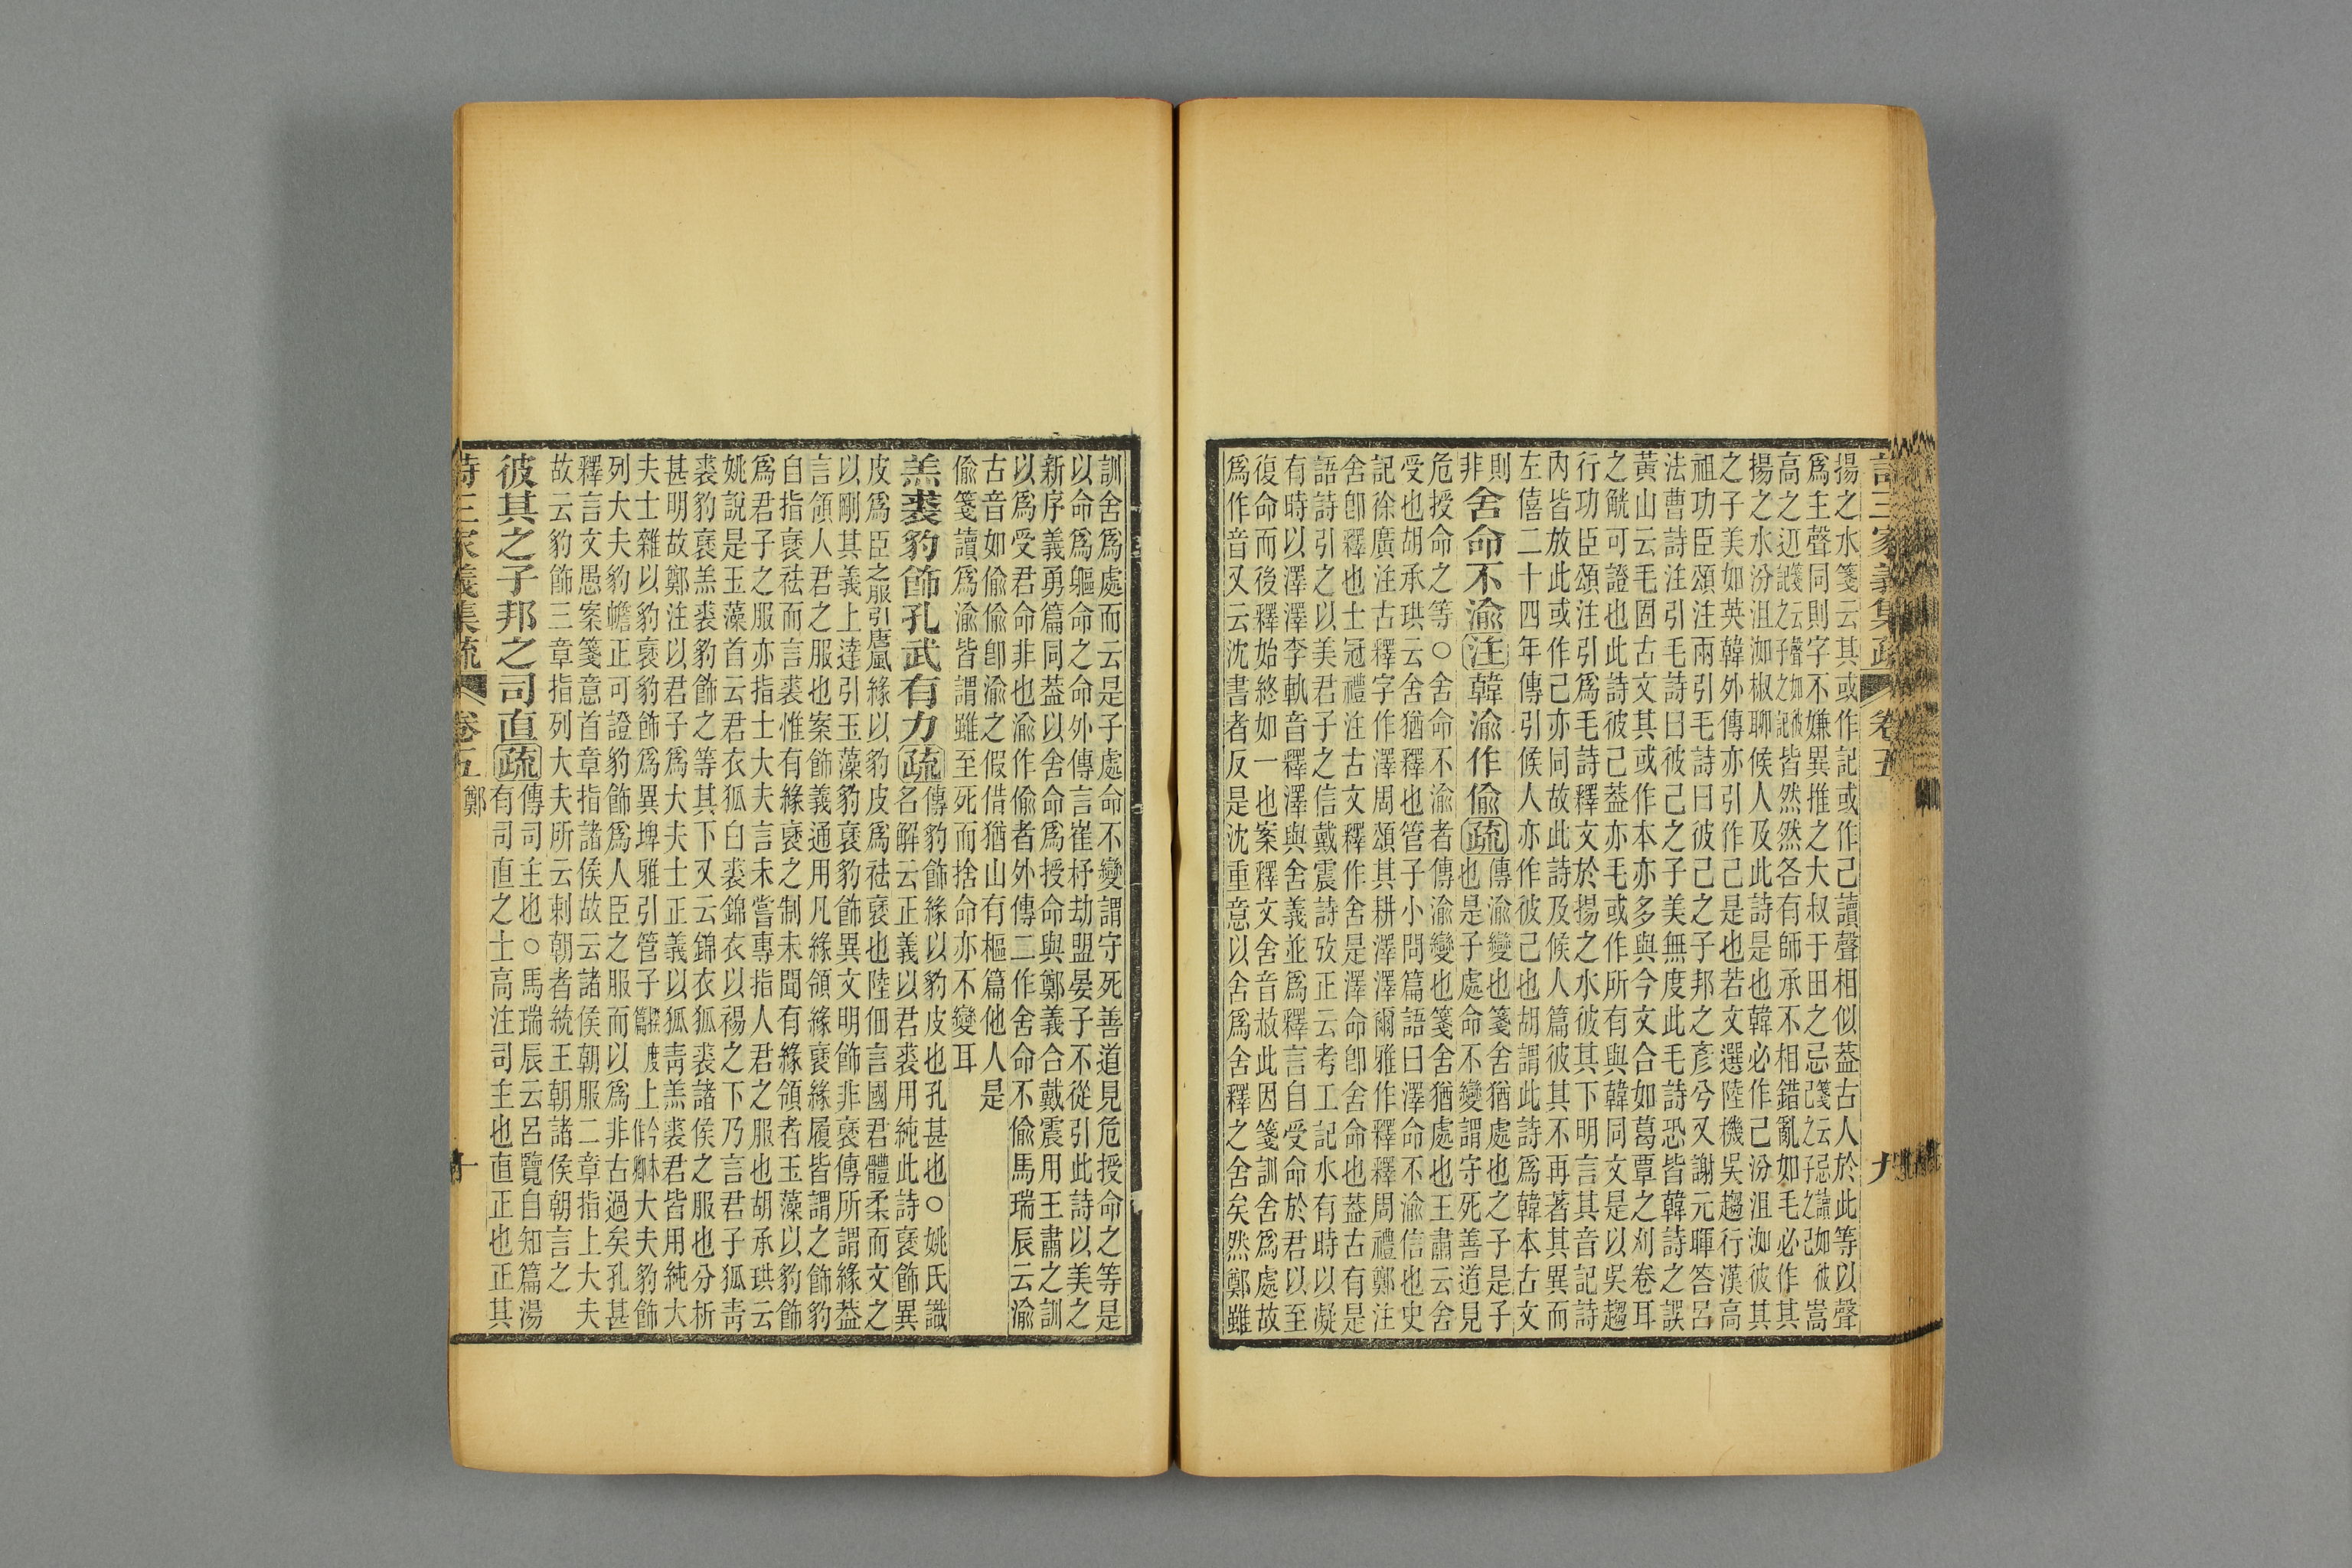 詩三家義集疏 卷五 九
揚之水箋云其或作記或作己讀聲相似葢古人於此等以聲
爲主聲同則字不嫌異推之大叔于田之忌箋云忌讀如彼己之子之己嵩
高之䢋箋云聲如彼記之子之記皆然然各有師承不相錯亂如毛必作其
揚之水汾沮洳椒聊候人及此詩是也韓必作己汾沮洳彼其
之子美如英韓外傳亦引作己是也若文選陸機吳趨行漢高
祖功臣頌注兩引毛詩曰彼己之子邦之彥兮又謝元暉答呂
法曹詩注引毛詩曰彼己之子美無度此毛詩恐皆韓詩之誤
黃山云毛固古文其或作本亦多與今文合如葛覃之刈卷耳
之觥可證也此詩彼己葢亦毛或作所有與韓同文是以吳趨
行功臣頌注引爲毛詩釋文於揚之水彼其下明言其音記詩
內皆放此或作己亦同故此詩及候人篇彼其不再著其異而
左僖二十四年傳引候人亦作彼己也胡謂此詩爲韓本古文
則
非舍命不渝注韓渝作偷疏傳渝變也箋舍猶處也之子是子
也是子處命不變謂守死善道見
危授命之等○舍命不渝者傳渝變也箋舍猶處也王肅云舍
受也胡承珙云舍猶釋也管子小問篇語曰澤命不渝信也史
記徐廣注古釋字作澤周頌其耕澤澤爾雅作釋釋周禮鄭注
舍卽釋也士冠禮注古文釋作舍是澤命卽舍命也葢古有是
語詩引之以美君子之信戴震詩攷正云考工記水有時以凝
有時以澤澤李軌音釋澤與舍義並爲釋言自受命於君以至
復命而後釋始終如一也案釋文舍音赦此因箋訓舍爲處故
爲作音又云沈書者反是沈重意以舍爲舍釋之舍矣然鄭雖
訓舍爲處而云是子處命不變謂守死善道見危授命之等是
以命爲軀命之命外傳言崔杼劫盟晏子不從引此詩以美之
新序義勇篇同葢以舍命爲授命與鄭義合戴震用王肅之訓
以爲受君命非也渝作偷者外傳二作舍命不偷馬瑞辰云渝
古音如偷偷卽渝之假借猶山有樞篇他人是
偷箋讀爲渝皆謂雖至死而捨命亦不變耳
羔裘豹飾孔武有力疏傳豹飾緣以豹皮也孔甚也○姚氏識
名解云正義以君裘用純此詩袤飾異
皮爲臣之服引唐風緣以豹皮爲袪袤也陸佃言國君體柔而文之
以剛其義上達引玉藻豹袤豹飾異文明飾非袤傳所謂緣葢
言領人君之服也案飾義通用凡緣領緣袤緣履皆謂之飾豹
自指袤袪而言裘惟有緣袤之制未聞有緣領者玉藻以豹飾
爲君子之服亦指士大夫言未嘗專指人君之服也胡承珙云
姚說是玉藻首云君衣狐白裘錦衣以裼之下乃言君子狐靑
裘豹袤羔裘豹飾之等其下又云錦衣狐裘諸侯之服也分析
甚明故鄭注以君子爲大夫士正義以狐靑羔裘君皆用純大
夫士雜以豹袤豹飾爲異埤雅引管子揆度篇上今本作卿大夫豹飾
列大夫豹幨正可證豹飾爲人臣之服而以爲非古過矣孔甚
釋言文愚案箋意首章指諸侯故云諸侯朝服二章指上大夫
故云豹飾三章指列大夫所云刺朝者統王朝諸侯朝言之
彼其之子邦之司直疏傳司主也○馬瑞辰云呂覽自知篇湯
有司直之士高注司主也直正也正其
詩三家義集疏 卷五 鄭 十